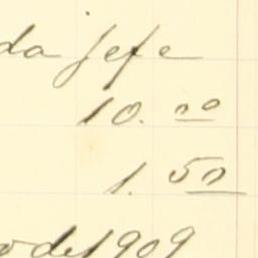 da jefe
10. 00
1. 50
o de 1909